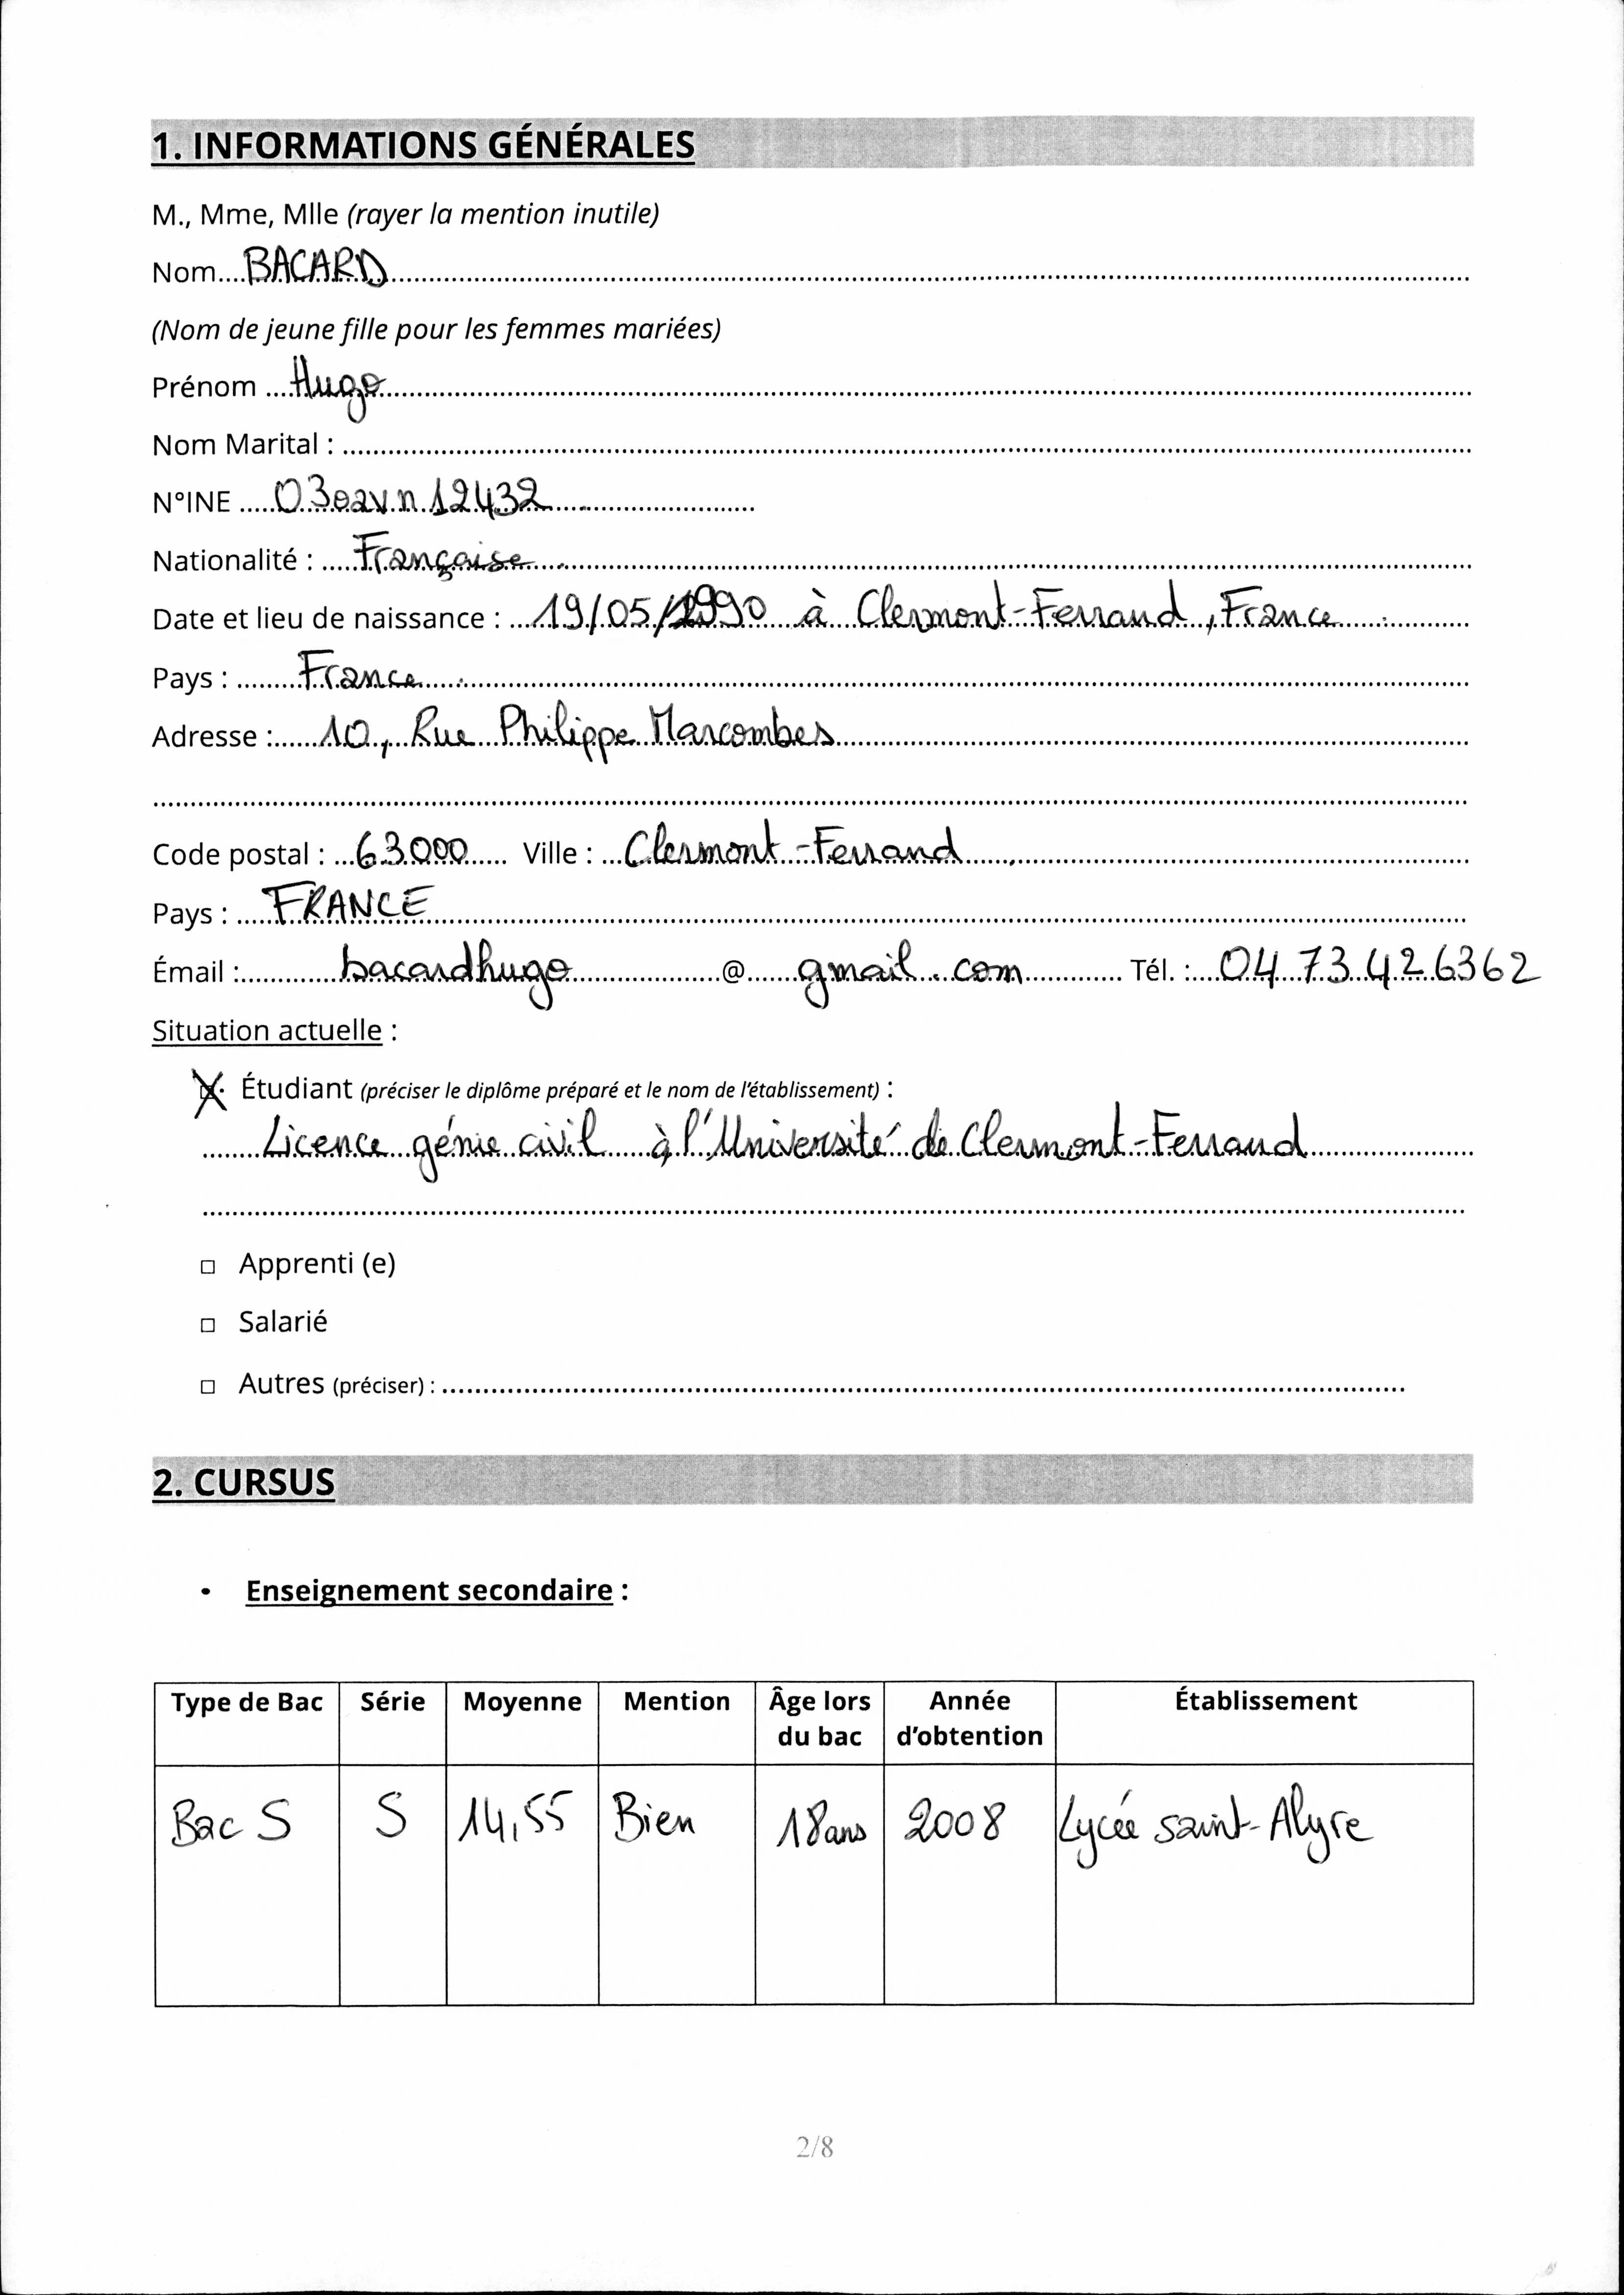 1. INFORMATIONS GÉNÉRALES
M., Mme, Mlle (rayer la mention inutile)
Nom BACARD
(Nom de jeune fille pour les femmes mariées)
Prénom Hugo
Nom Marital :
N°INE 03eavn12432
Nationalité : Française
Date et lieu de naissance : 19/05/1990 à Clermont-Ferrand, France
Pays : France
Adresse : 10, Rue Philippe Marcombes
Code postal : 63000 Ville : Clermont-Ferrand
Pays : FRANCE
Émail : bacardhugo @ gmail.com Tél. : 04 73 426362
Situation actuelle :
Étudiant (préciser le diplôme préparé et le nom de l'établissement) :
Licence génie civil à l'Université de Clermont-Ferrand
Apprenti (e)
Salarié
Autres (préciser) :
2. CURSUS
• Enseignement secondaire :
Type de Bac Série Moyenne Mention Âge lors du bac Année d'obtention Établissement
Bac S S 14,55 Bien 18ans 2008 Lycée saint-Alyre
2/8